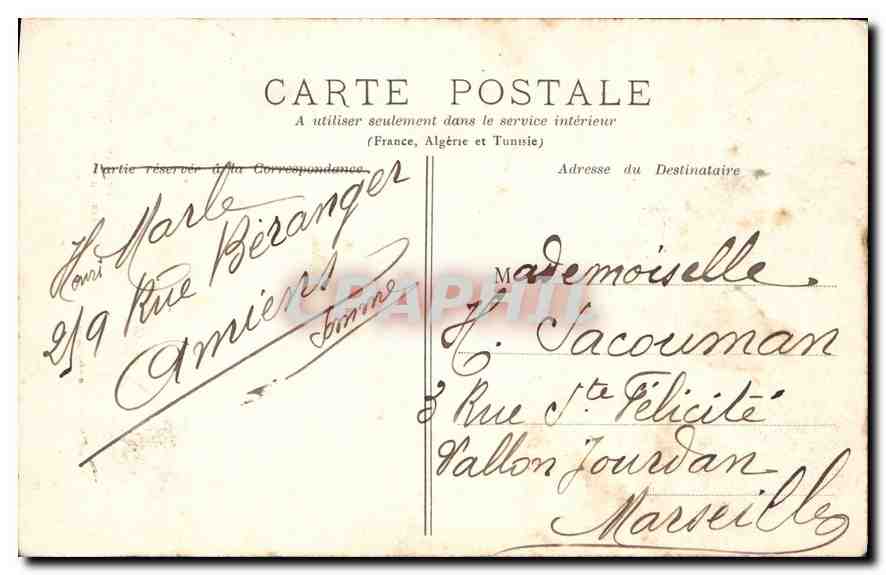 CARTE POSTALE
A utiliser seulement dans le service intérieur
(France, Algérie et Tunisie)
Partie réservée à la Correspondance
Adresse du Destinataire
Henri Marle
29 Rue Béranger
Amiens
Somme
Mademoiselle
H. Jacouman
3 Rue Ste Félicité
Vallon Jourdan
Marseille
CPAPHIL